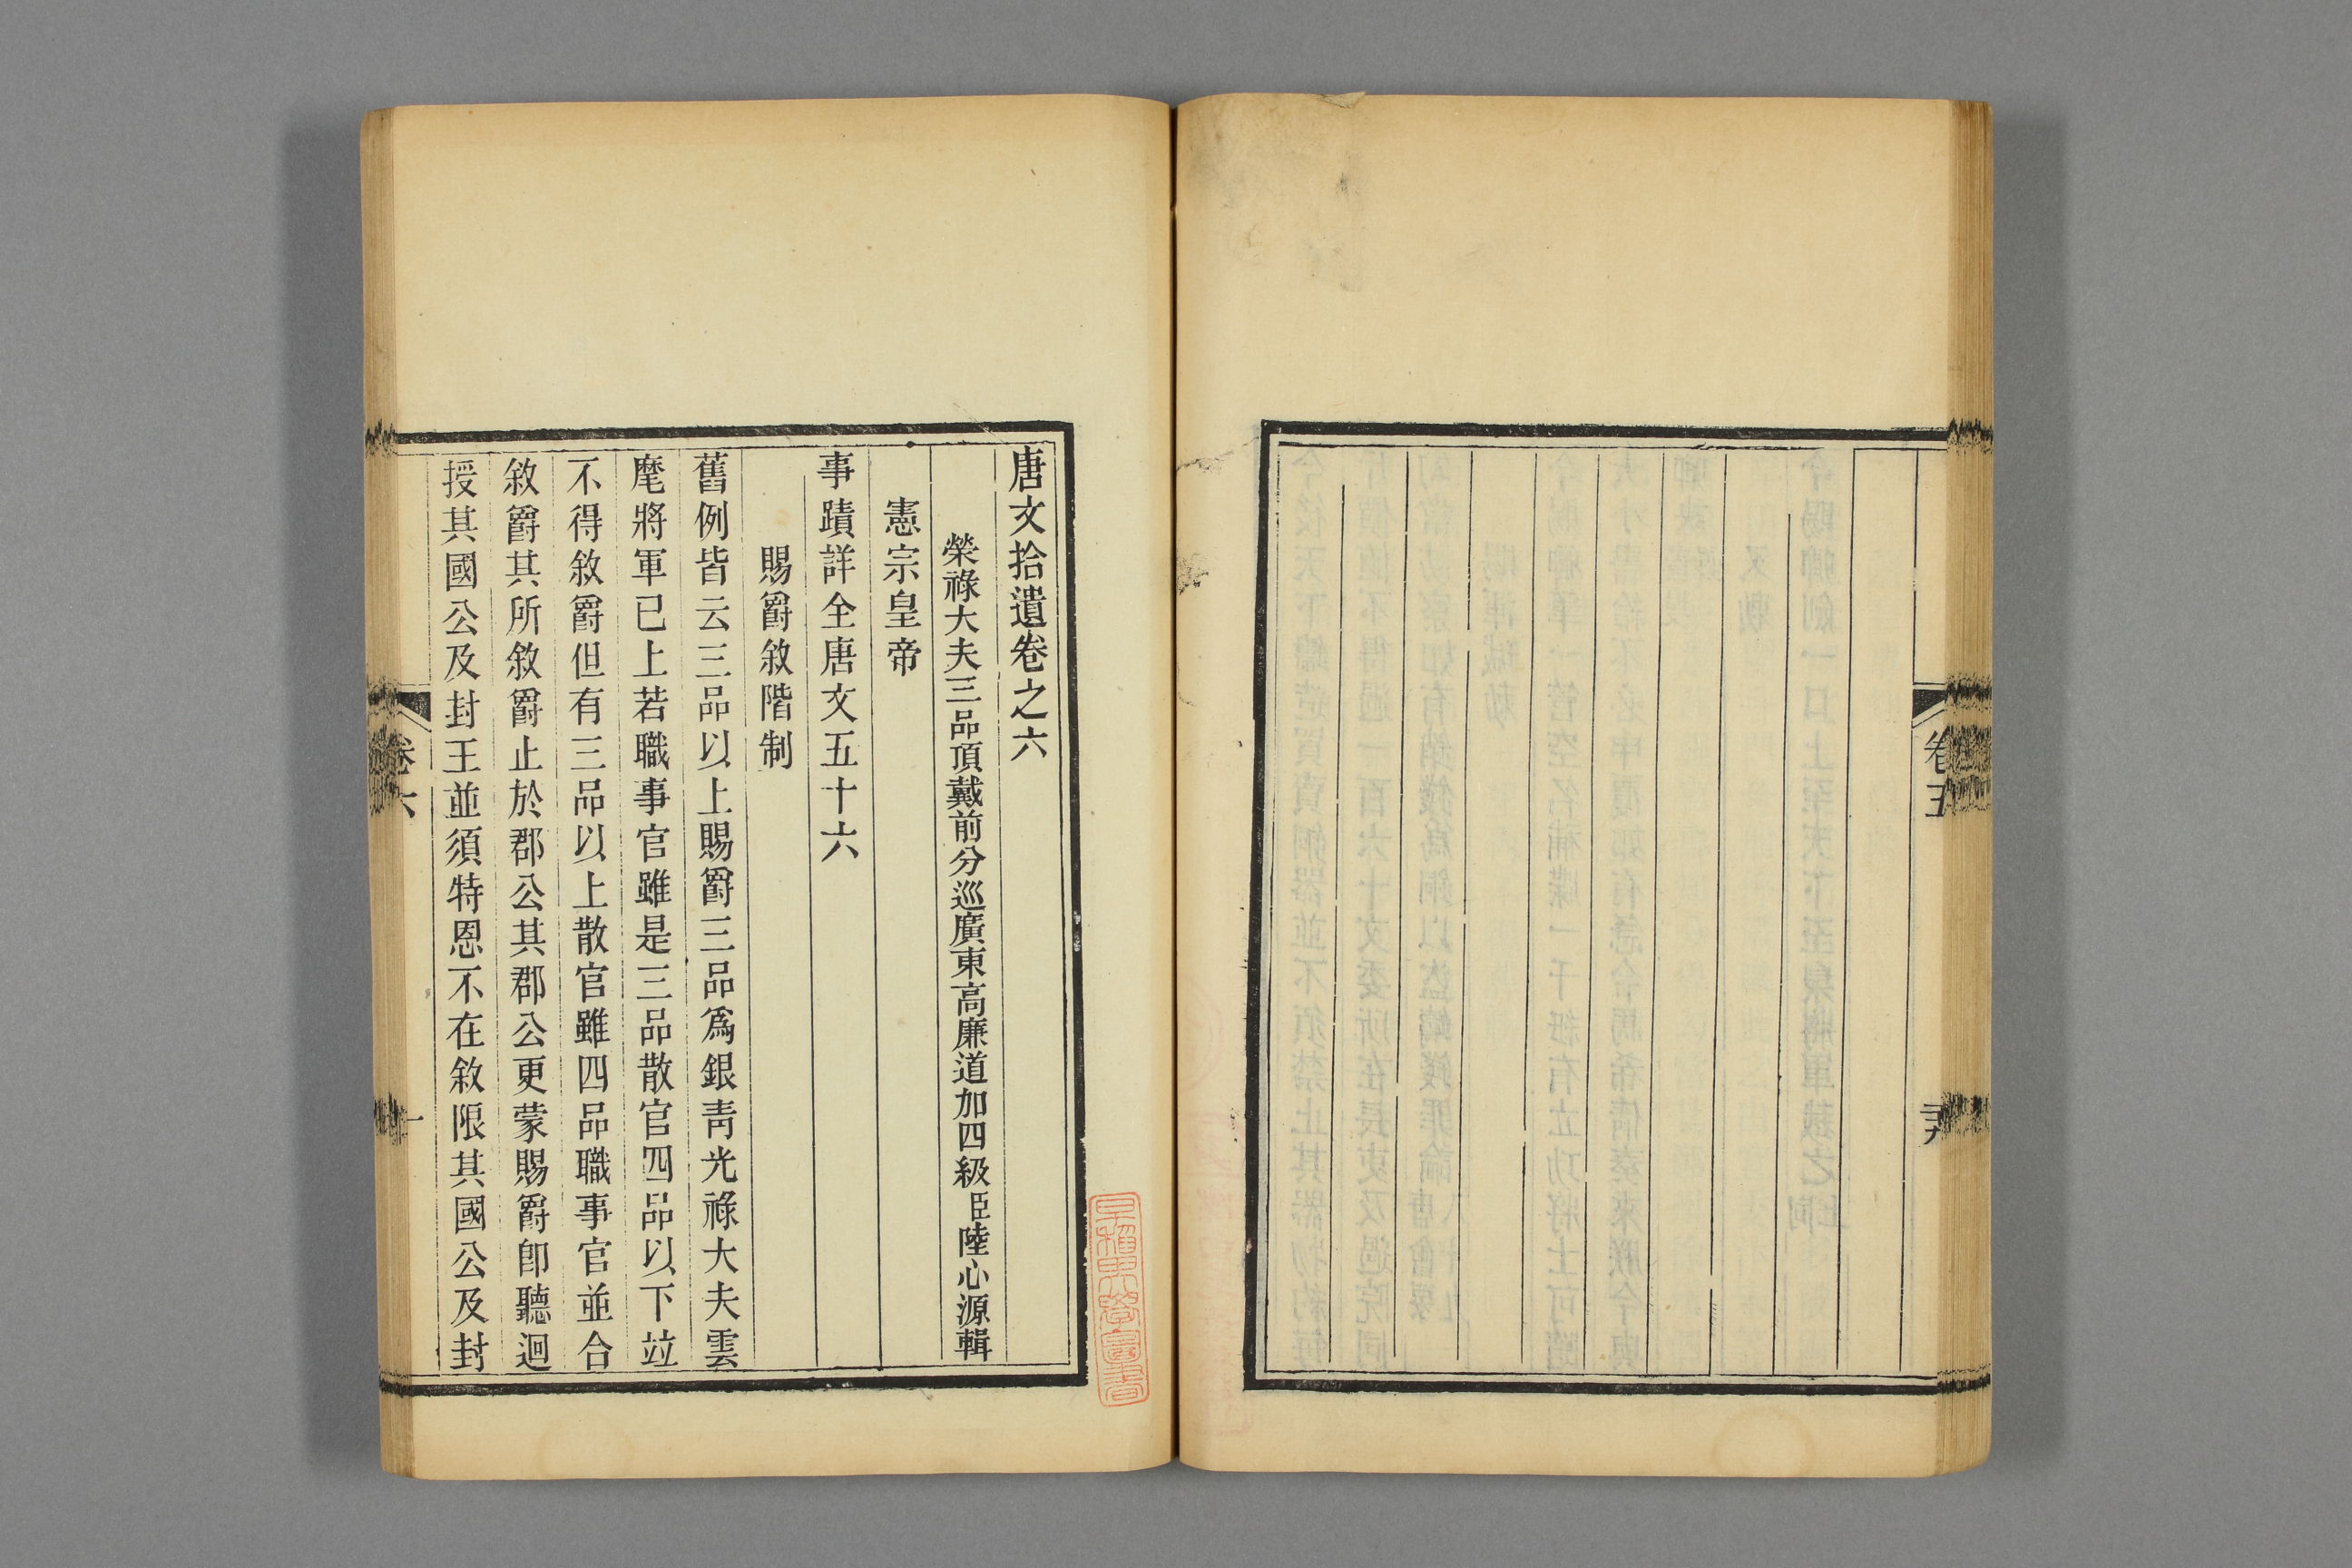 卷五
唐文拾遺卷之六
榮祿大夫三品頂戴前分巡廣東高廉道加四級臣陸心源輯
憲宗皇帝
事蹟詳全唐文五十六
賜爵敘階制
舊例皆云三品以上賜爵三品爲銀青光祿大夫雲
麾將軍已上若職事官雖是三品散官四品以下竝
不得敘爵但有三品以上散官雖四品職事官並合
敘爵其所敘爵止於郡公其郡公更蒙賜爵卽聽迴
授其國公及封王並須特恩不在敘限其國公及封
卷六
一